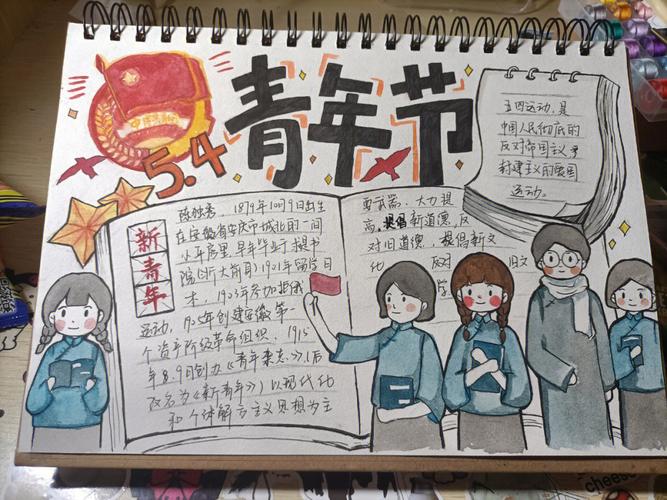 5.4
青年节
五四运动,是
中国人民彻底的
反对帝国主义
封建主义的爱国
运动。
新青年
陈独秀,1879年10月9日出生
在安徽省安庆市城北的一间
小平房里,早年毕业于求是书
院(浙大前身)1901年留学日
本,1903年参加拒俄
运动,1905年创建安徽第一
个资产阶级革命组织,1915
年8、9月创办《青年杂志》(后
改名为《新青年》)以现代化
和个体解方主义思想为主
要武器、大力提
高,提倡新道德,反
对旧道德,提倡新文
化 反对 旧文
学